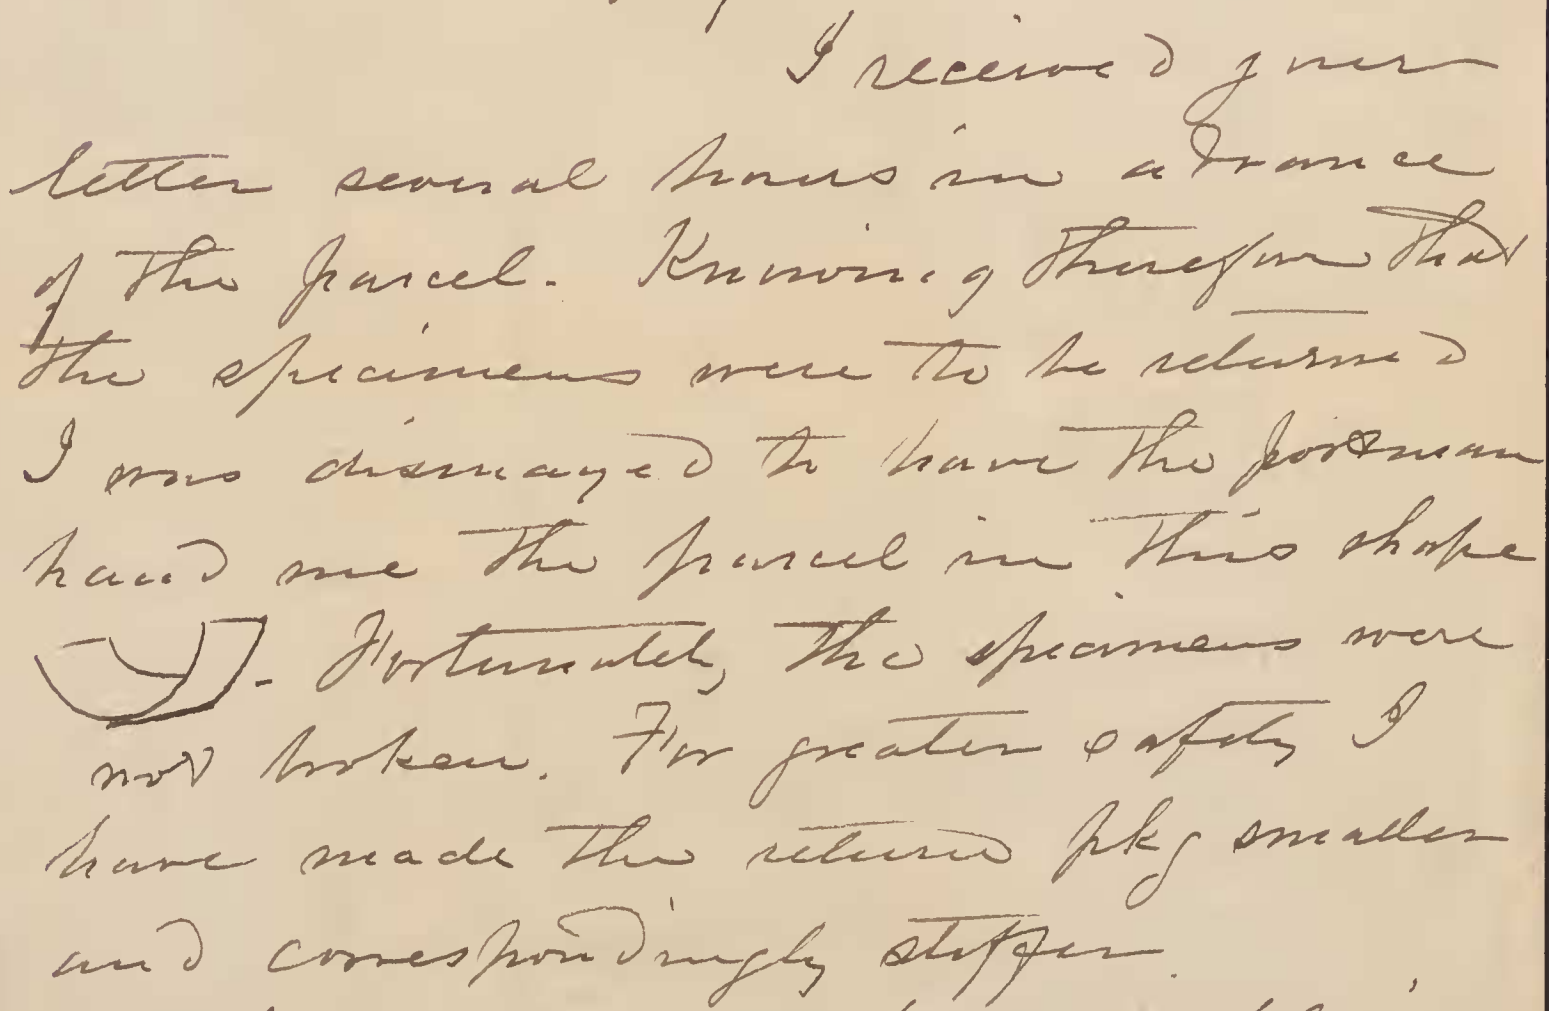 I received your
letter several hours in advance
of the parcel. Knowing therefore that
the specimens were to be returned
I was dismayed to have the postman
hand me the parcel in this shape
. Fortunately, the specimens were
not broken. For greater safety I
have made the return pkg smaller
and correspondingly stiffer.